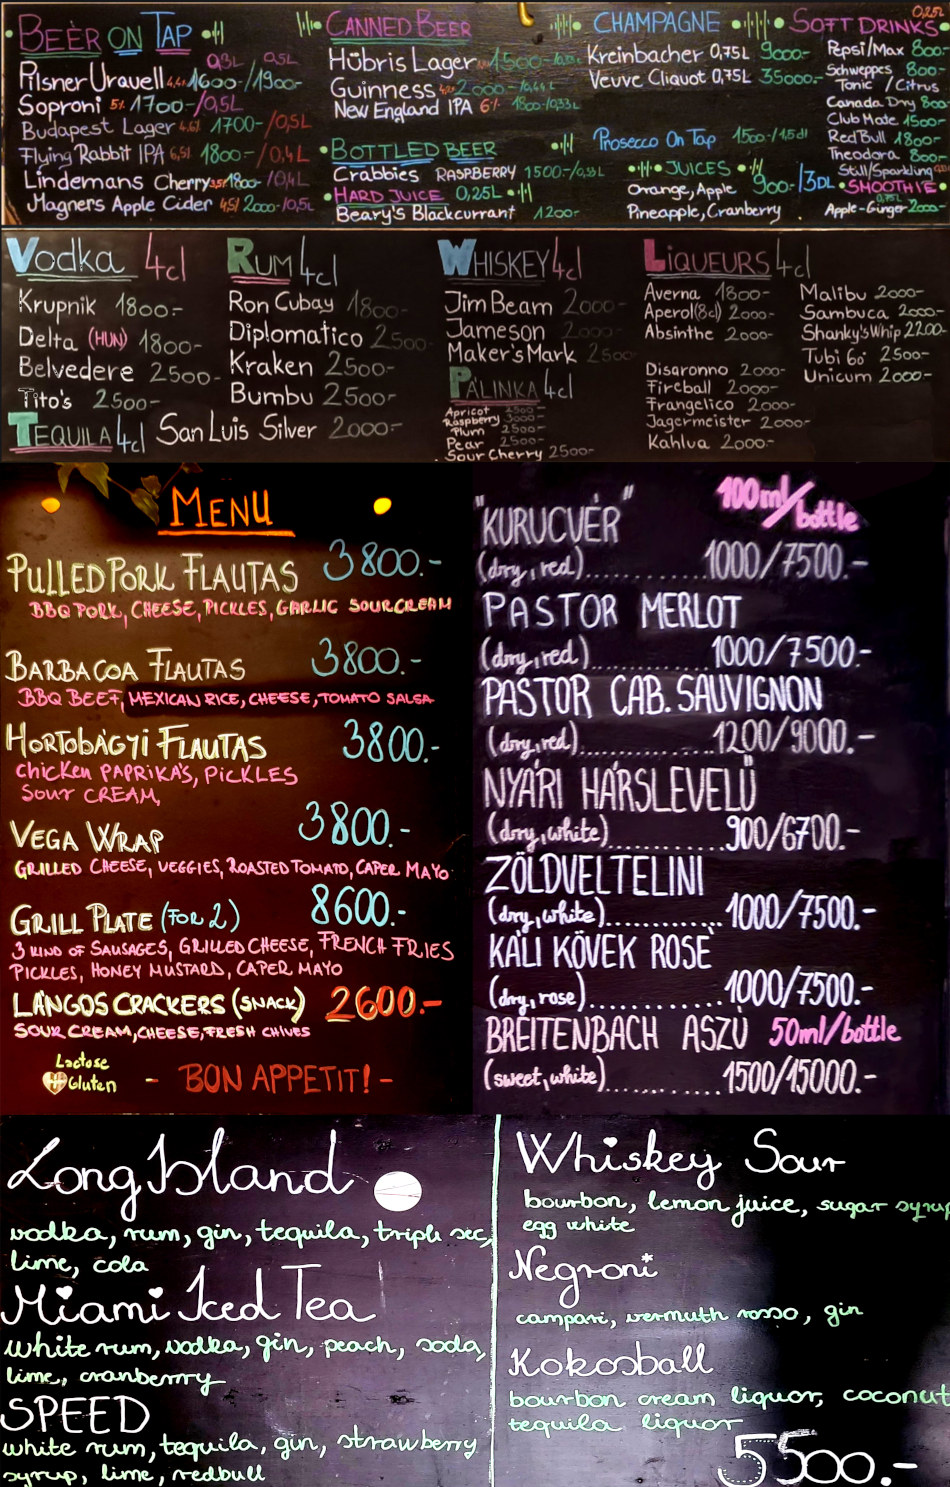 BEER ON TAP
0,3L 0,5L
Pilsner Urquell 4,4% 1600-/1900-
Soproni 5% 1700-/0,5L
Budapest Lager 4,6% 1700-/0,5L
Flying Rabbit IPA 6,5% 1800-/0,4L
Lindemans Cherry 3,5% 1800-/0,4L
Magners Apple Cider 4,5% 2000-/0,5L
CANNED BEER
Hübris Lager 1500-
Guinness 2000-/0,44L
New England IPA 6% 1800-/0,33L
BOTTLED BEER
Crabbies RASPBERRY 1500-/0,33L
HARD JUICE 0,25L
Beary's Blackcurrant 1200-
CHAMPAGNE
Kreinbacher 0,75L 9000-
Veuve Cliquot 0,75L 35000-
Prosecco On Tap 1500-/1,5dl
JUICES
Orange, Apple 900-/3DL
Pineapple, Cranberry
SOFT DRINKS 0,25L
Pepsi/Max 800-
Schweppes 800-
Tonic / Citrus
Canada Dry 800
Club Mate 1500-
Red Bull 1800-
Theodora 800-
Still/Sparkling
SMOOTHIE
Apple-Ginger 2000-
Vodka 4cl
Krupnik 1800-
Delta (HUN) 1800-
Belvedere 2500-
Tito's 2500-
TEQUILA 4cl San Luis Silver 2000-
RUM 4cl
Ron Cubay 1800-
Diplomatico 2500-
Kraken 2500-
Bumbu 2500-
WHISKEY 4cl
Jim Beam 2000-
Jameson 2000-
Maker's Mark 2500
PÁLINKA 4cl
Apricot 2500-
Raspberry 3000-
Plum 2500-
Pear 2500-
Sour Cherry 2500-
LIQUEURS 4cl
Averna 1800-
Aperol (8cl) 2000-
Absinthe 2000-
Disaronno 2000-
Fireball 2000-
Frangelico 2000-
Jagermeister 2000-
Kahlua 2000-
Malibu 2000-
Sambuca 2000-
Shanky's Whip 2200
Tubi 60 2500-
Unicum 2000-
MENU
PULLED PORK FLAUTAS 3800.-
BBQ PORK, CHEESE, PICKLES, GARLIC SOURCREAM
BARBACOA FLAUTAS 3800.-
BBQ BEEF, MEXICAN RICE, CHEESE, TOMATO SALSA
HORTOBÁGYI FLAUTAS 3800.-
Chicken PAPRIKA'S, PICKLES
SOUR CREAM,
VEGA WRAP 3800.-
GRILLED CHEESE, VEGGIES, ROASTED TOMATO, CAPER MAYO
GRILL PLATE (FOR 2) 8600.-
3 KIND OF SAUSAGES, GRILLED CHEESE, FRENCH FRIES
PICKLES, HONEY MUSTARD, CAPER MAYO
LÁNGOS CRACKERS (SNACK) 2600.-
SOUR CREAM, CHEESE, FRESH CHIVES
Lactose
Gluten
- BON APPETIT! -
100ml/bottle
"KURUCVÉR"
(dry, red)..........1000/7500.-
PASTOR MERLOT
(dry, red)..........1000/7500.-
PASTOR CAB. SAUVIGNON
(dry, red)..........1200/9000.-
NYÁRI HÁRSLEVELŰ
(dry, white)..........900/6700.-
ZÖLDVELTELINI
(dry, white)..........1000/7500.-
KÁLI KÖVEK ROSÉ
(dry, rose)..........1000/7500.-
BREITENBACH ASZÚ 50ml/bottle
(sweet, white)..........1500/15000.-
Long Island
vodka, rum, gin, tequila, triple sec,
lime, cola
Miami Iced Tea
white rum, vodka, gin, peach, soda,
lime, cranberrry
SPEED
white rum, tequila, gin, strawberry
syrup, lime, redbull
Whiskey Sour
bourbon, lemon juice, sugar syrup
egg white
Negroni
campari, vermuth rosso, gin
Kokosball
bourbon cream liquor, coconut
tequila liquor
5500.-